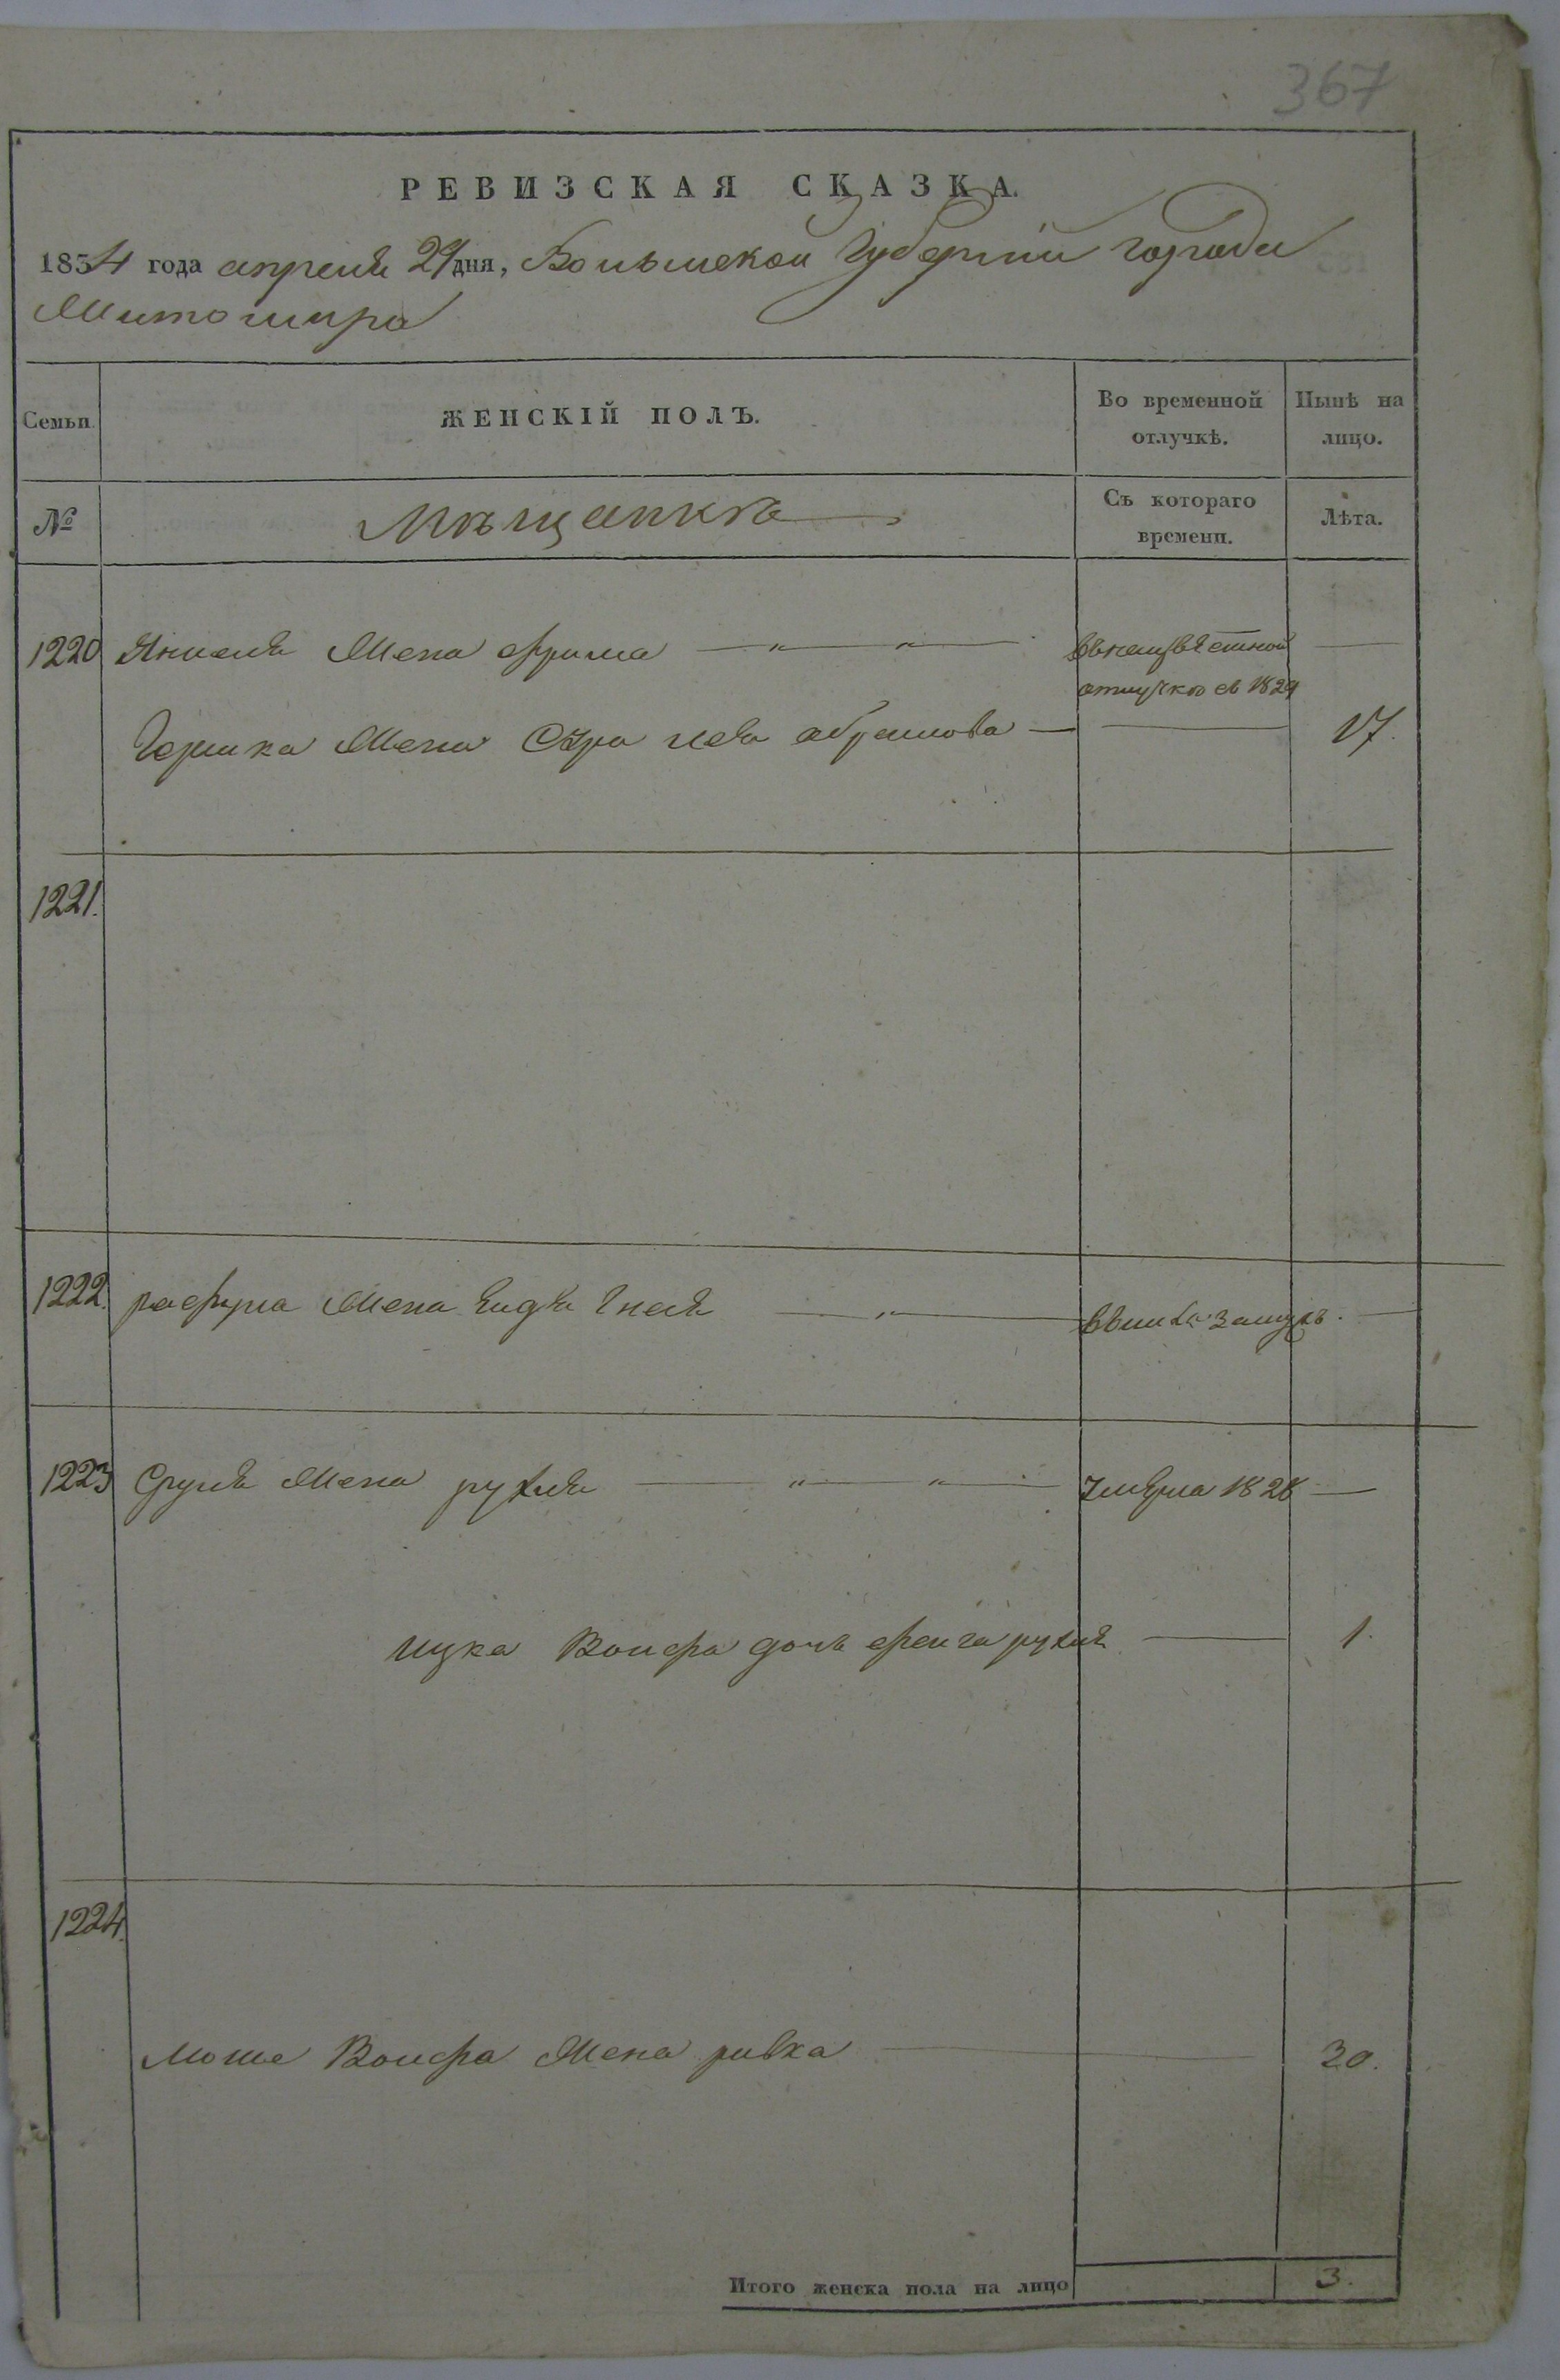 367
РЕВИЗСКАЯ СКАЗКА.
1834 года апреля 29 дня, Волынской Губернии города
Житомира
Семьи. ЖЕНСКІЙ ПОЛЪ. Во временной отлучкѣ. Нынѣ на лицо.
№ Мѣщанкѣ Съ котораго времени. Лѣта.
1220 Янкеля Жена фрима — " — " — въ неизвѣстной —
отлучке съ 1829
Гершка Жена Сура лея абрамова — — 17.
1221.
1222. рафула Жена Гнеся — " — вышла замужъ. —
1223 Сруля Жена рухля — " — " — Умерла 1828 —
ицка Вольфа дочь фейга рухля — 1.
1224.
Мошe Вольфа Жена ривка — — 30.
Итого женска пола на лицо 3.